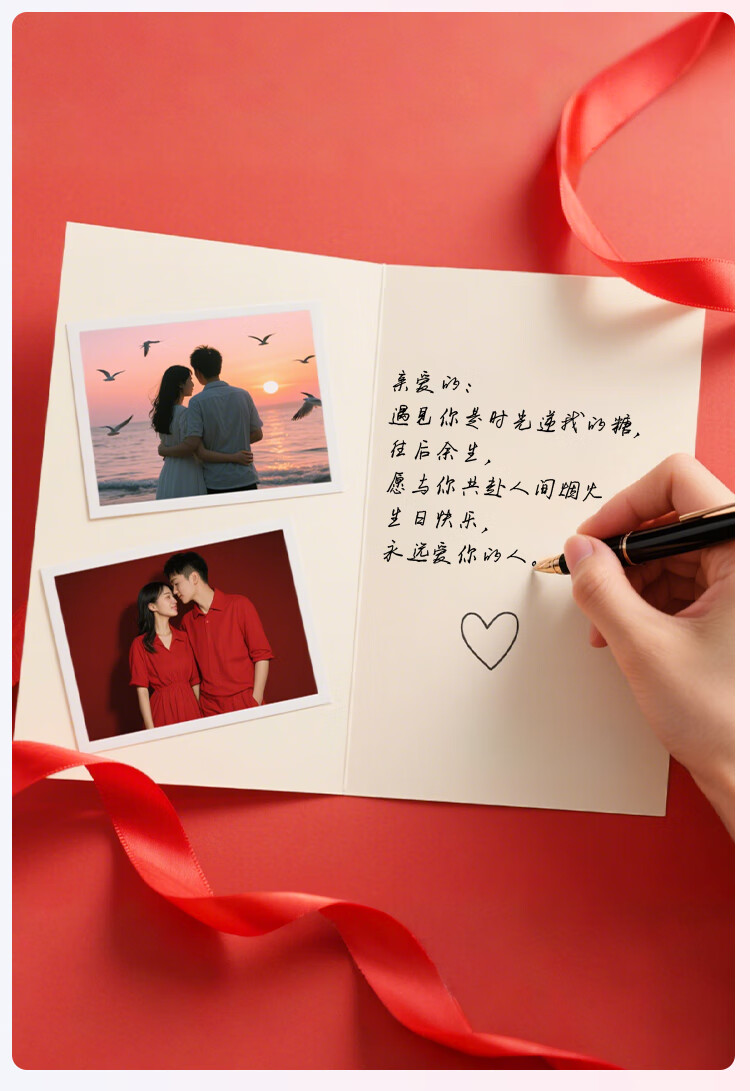 亲爱的：
遇见你是时光递我的糖，
往后余生，
愿与你共赴人间烟火
生日快乐，
永远爱你的人。